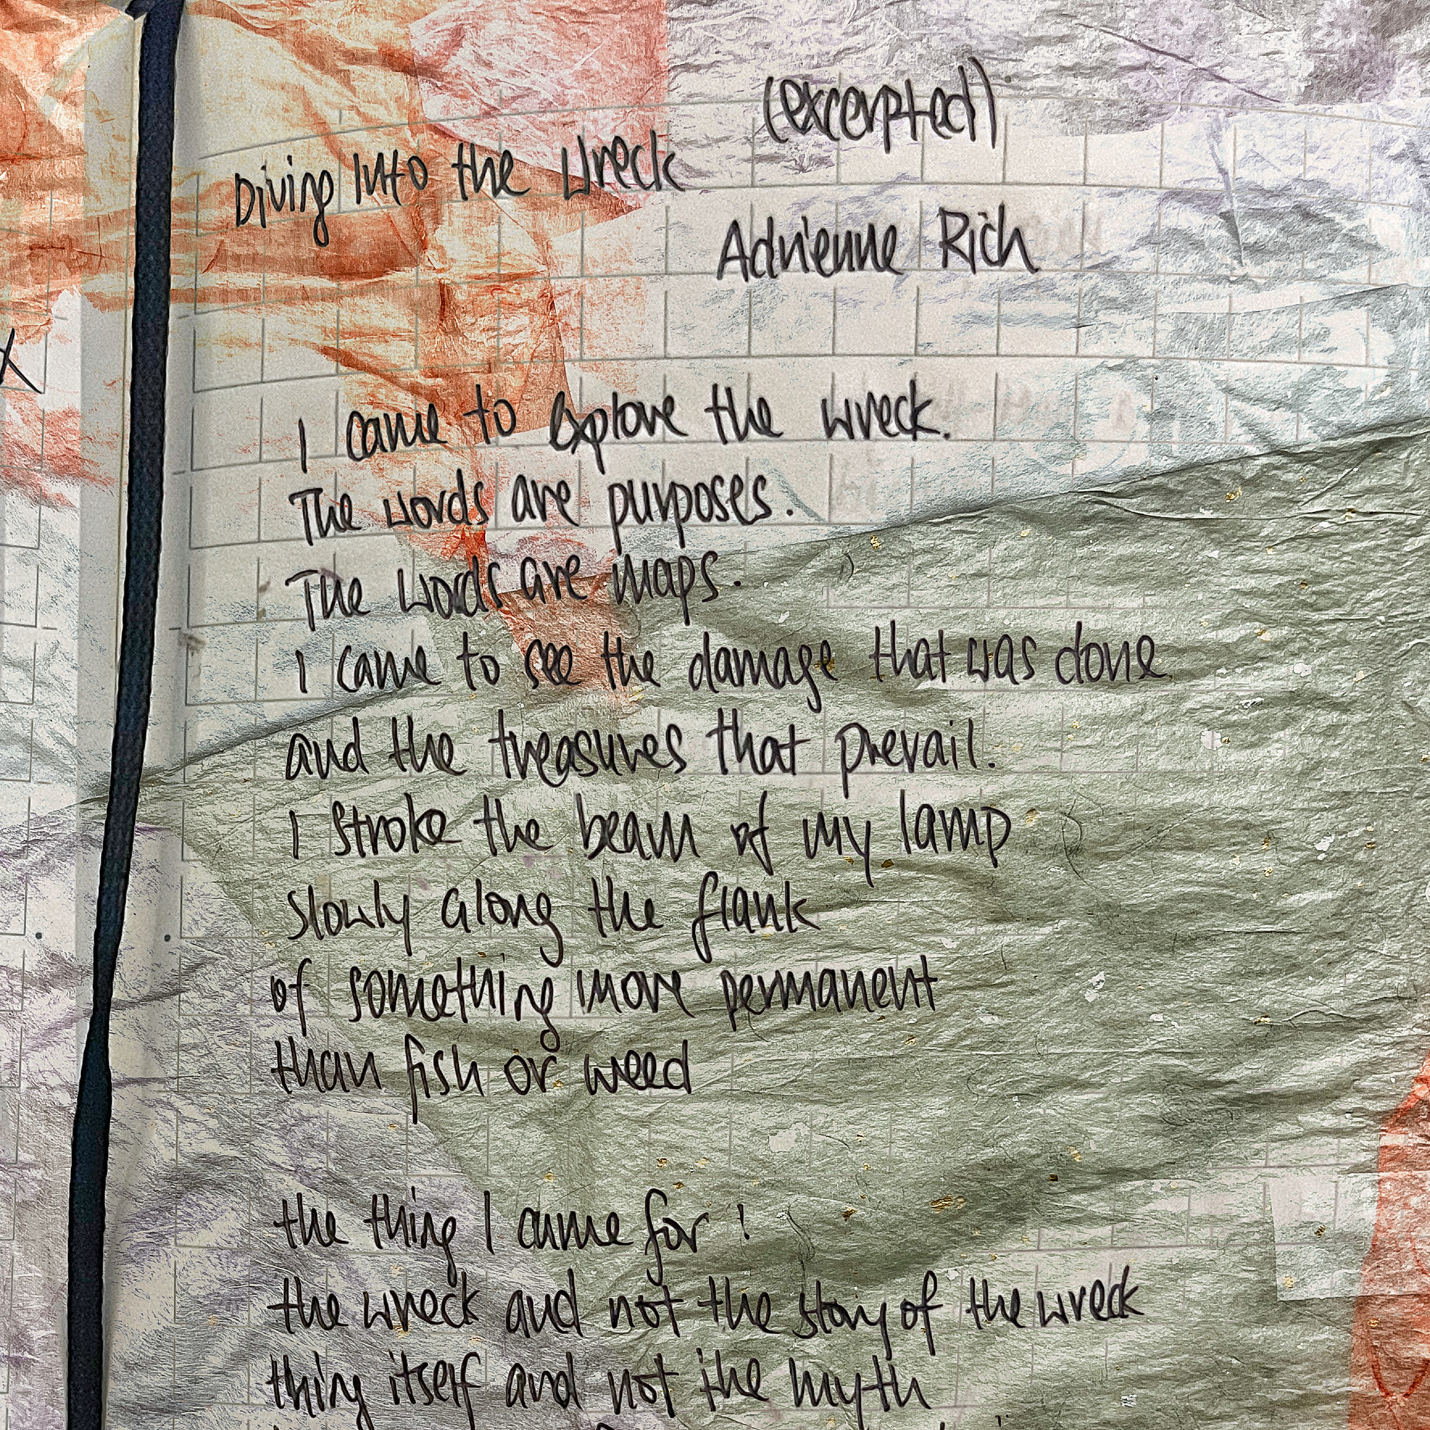 (excerpted)
Diving Into the Wreck
Adrienne Rich
I came to explore the wreck.
The words are purposes.
The words are maps.
I came to see the damage that was done
and the treasures that prevail.
I stroke the beam of my lamp
slowly along the flank
of something more permanent
than fish or weed
the thing I came for:
the wreck and not the story of the wreck
thing itself and not the myth